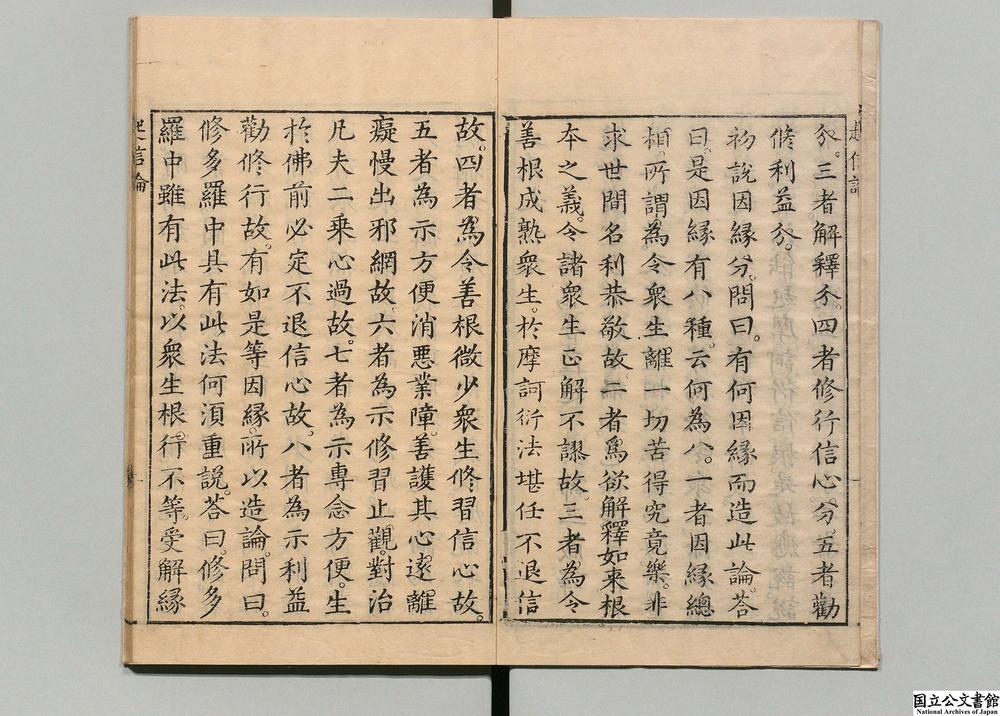 分。三者解釋分。四者修行信心分。五者勸
修利益分。
初說因緣分。問曰。有何因緣而造此論。荅
曰。是因緣有八種。云何為八。一者因緣總
相。所謂為令衆生離一切苦得究竟樂。非
求世間名利恭敬故。二者爲欲解釋如來根
本之義。令諸衆生正解不謬故。三者為令
善根成熟衆生。於摩訶衍法堪任不退信
故。四者為令善根微少衆生修習信心故。
五者為示方便消悪業障。善護其心。遠離
癡慢出邪網故。六者為示修習止觀。對治
凡夫二乗心過故。七者為示專念方便。生
於佛前必定不退信心故。八者為示利益
勸修行故。有如是等因緣。所以造論。問曰。
修多羅中具有此法。何須重說。荅曰。修多
羅中雖有此法。以衆生根行不等。受解緣
起信論
国立公文書館
National Archives of Japan